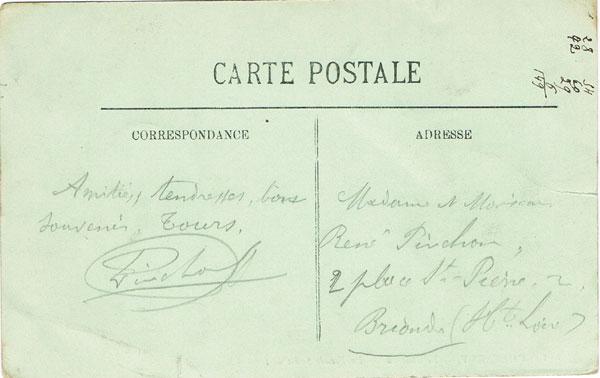 CARTE POSTALE
CORRESPONDANCE
ADRESSE
Amitiés, tendresses, bons
souvenirs, Tours.
Pinchon
Madame et Monsieur
René Pinchon,
2 place St-Pierre, 2,
Brioude (Hte Loire)